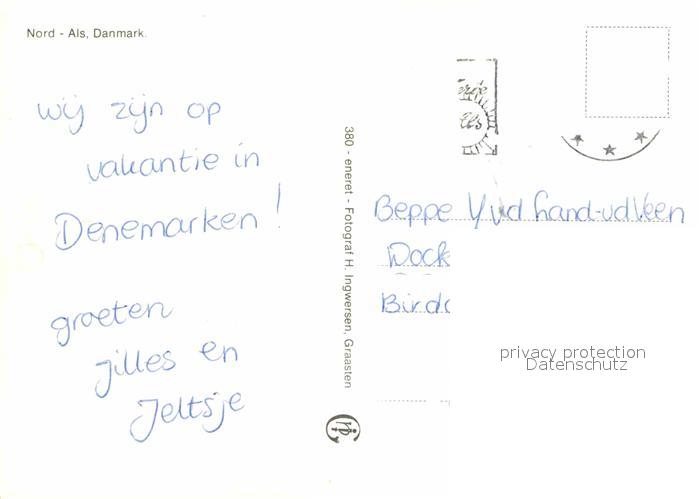 Nord - Als, Danmark.
wij zijn op
vakantie in
Denemarken!
groeten
Jilles en
Jeltsje
380 - eneret - Fotograf H. Ingwersen, Graasten
Als
Beppe Y vd hand-vd Veen
Dock
Bird
privacy protection
Datenschutz